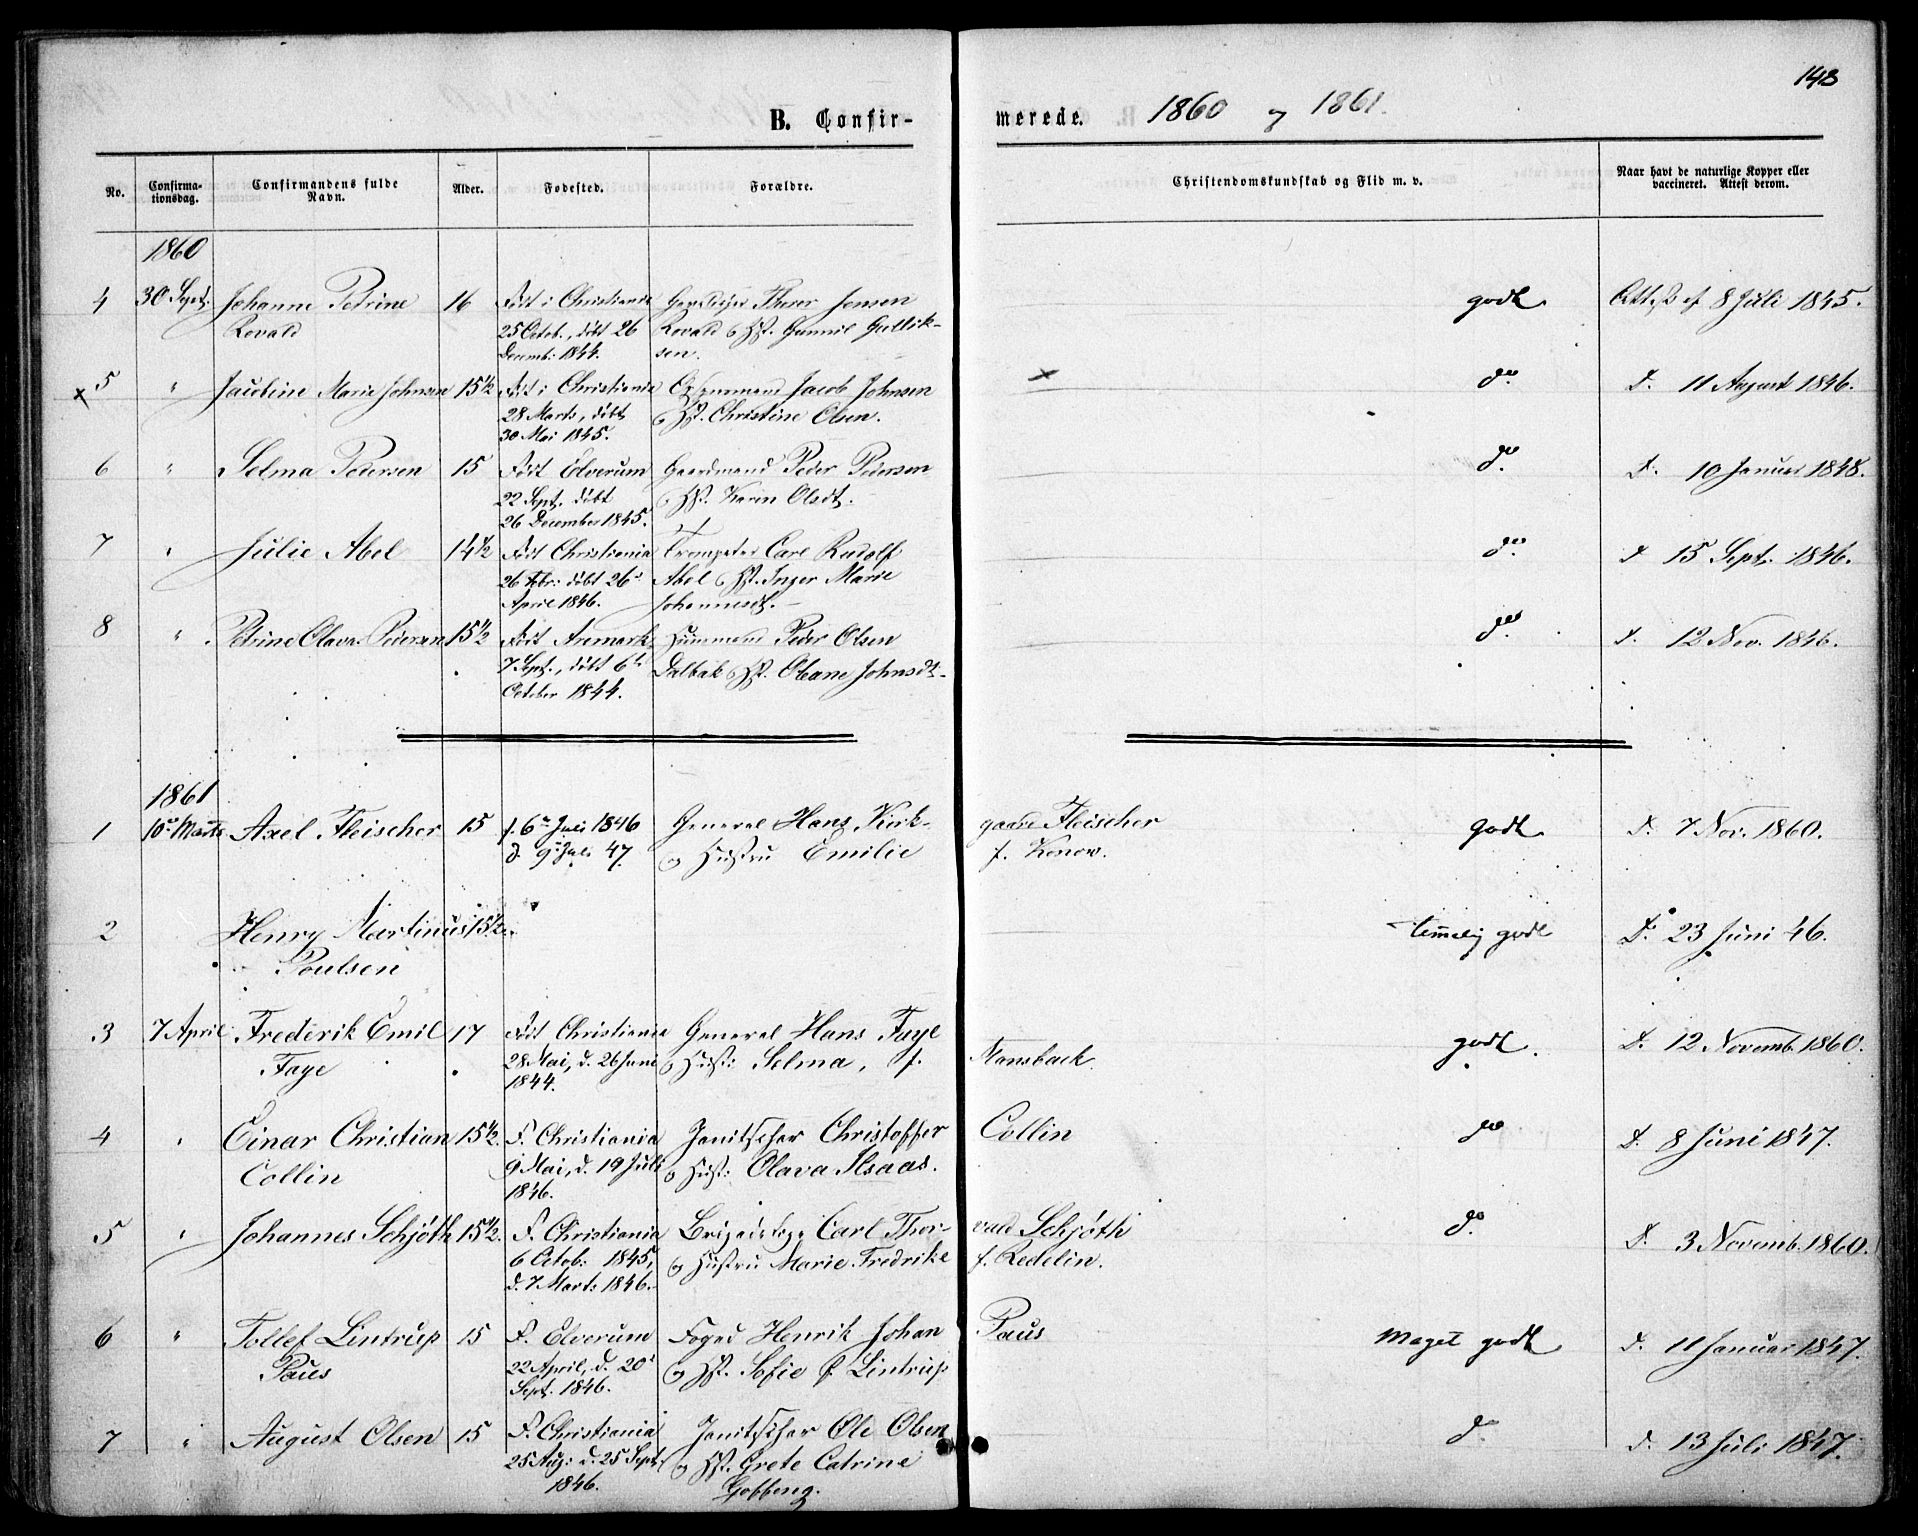 143
B. Confirmerede. 1860 og 1861.
No.
Confirmationsdag.
Confirmandens fulde Navn.
Alder.
Fodested.
Forældre.
Christendomskundskab og Flid m. v.
Naar havt de naturlige Kopper eller vaccineret. Attest derom.
1860
4 30 Sept. Johanne Petrine 16 Født i Christiania Threr Jensen godt. Attest af 8 Juli 1845.
Rovald 25 Octob., døbt 26 Rovald og Hst. Gunnil Gullik-
Decemb: 1844. sen.
x 5 " Jacobine Marie Johnsen 15½ Født i Christiania Jacob Johnsen x do. D. 11 August 1846.
28 Marts, døbt og Hst. Christine Olsen.
30 Mai 1845.
6 " Selma Petersen 15 Født Elverum Gaardmand Peder Pedersen do. D. 10 Januar 1848.
22 Sept. døbt og Hst. Karen Olsdt.
26 December 1845.
7 " Julie Abel 14½ Født Christiania Trompeter Carl Rudolf do. D. 15 Sept. 1846.
26 Febr: døbt 26 Abel og Hst. Inger Marie
April 1846. Johannesdt.
8 " Petrine Olava Pedersen 15½ Født Aremark Huusmand Peder Olsen do. D. 12 Nov. 1846.
7 Sept., døbt 6te Dalbak og Hst. Oleane Johnsdt.
October 1844.
1861
1 10de Marts Axel Fleischer 15 f. 6te Juli 1846 General Hans Kirk- gaard Fleischer godt D. 7 Nov. 1860.
d. 9de Juli 47. og Hustru Emilie f. Konow.
2 Henry Martinus 15½ temmelig godt D. 23 Juni 46.
Poulsen
3 7 April Frederik Emil 17 Født Christiania General Hans Faye godt. D. 12 Novemb. 1860.
Faye 28 Mai, d. 26 Juni og Hust: Selma, f. Nansback.
1844.
4 " Einar Christian 15½. F. Christiania Janitschar Christoffer Collin do D. 8 Juni 1847.
Collin 9 Mai, d. 19 Juli og Hust: Olava Isaas.
1846.
5 " Johannes Schjøth 15½. F. Christiania Carl Thor- vald Schjøth do D. 3 Novemb. 1860.
6 Octob: 1845, og Hustru Marie Fredrike f. Redelin.
d. 7 Marts 1846.
6 " Tollef Lintrup 15 F. Elverum Foged Henrik Johan Paus Meget godt D. 11 Januar 1847.
Paus 22 April, d. 20 og Hst. Sofie f. Lintrup
Sept. 1846.
7 " August Olsen 15 F. Christiania Janitschar Ole Olsen do. D. 13 Juli 1847.
25 Aug: d. 25 Sept. og Hst. Grete Catrine
1846.